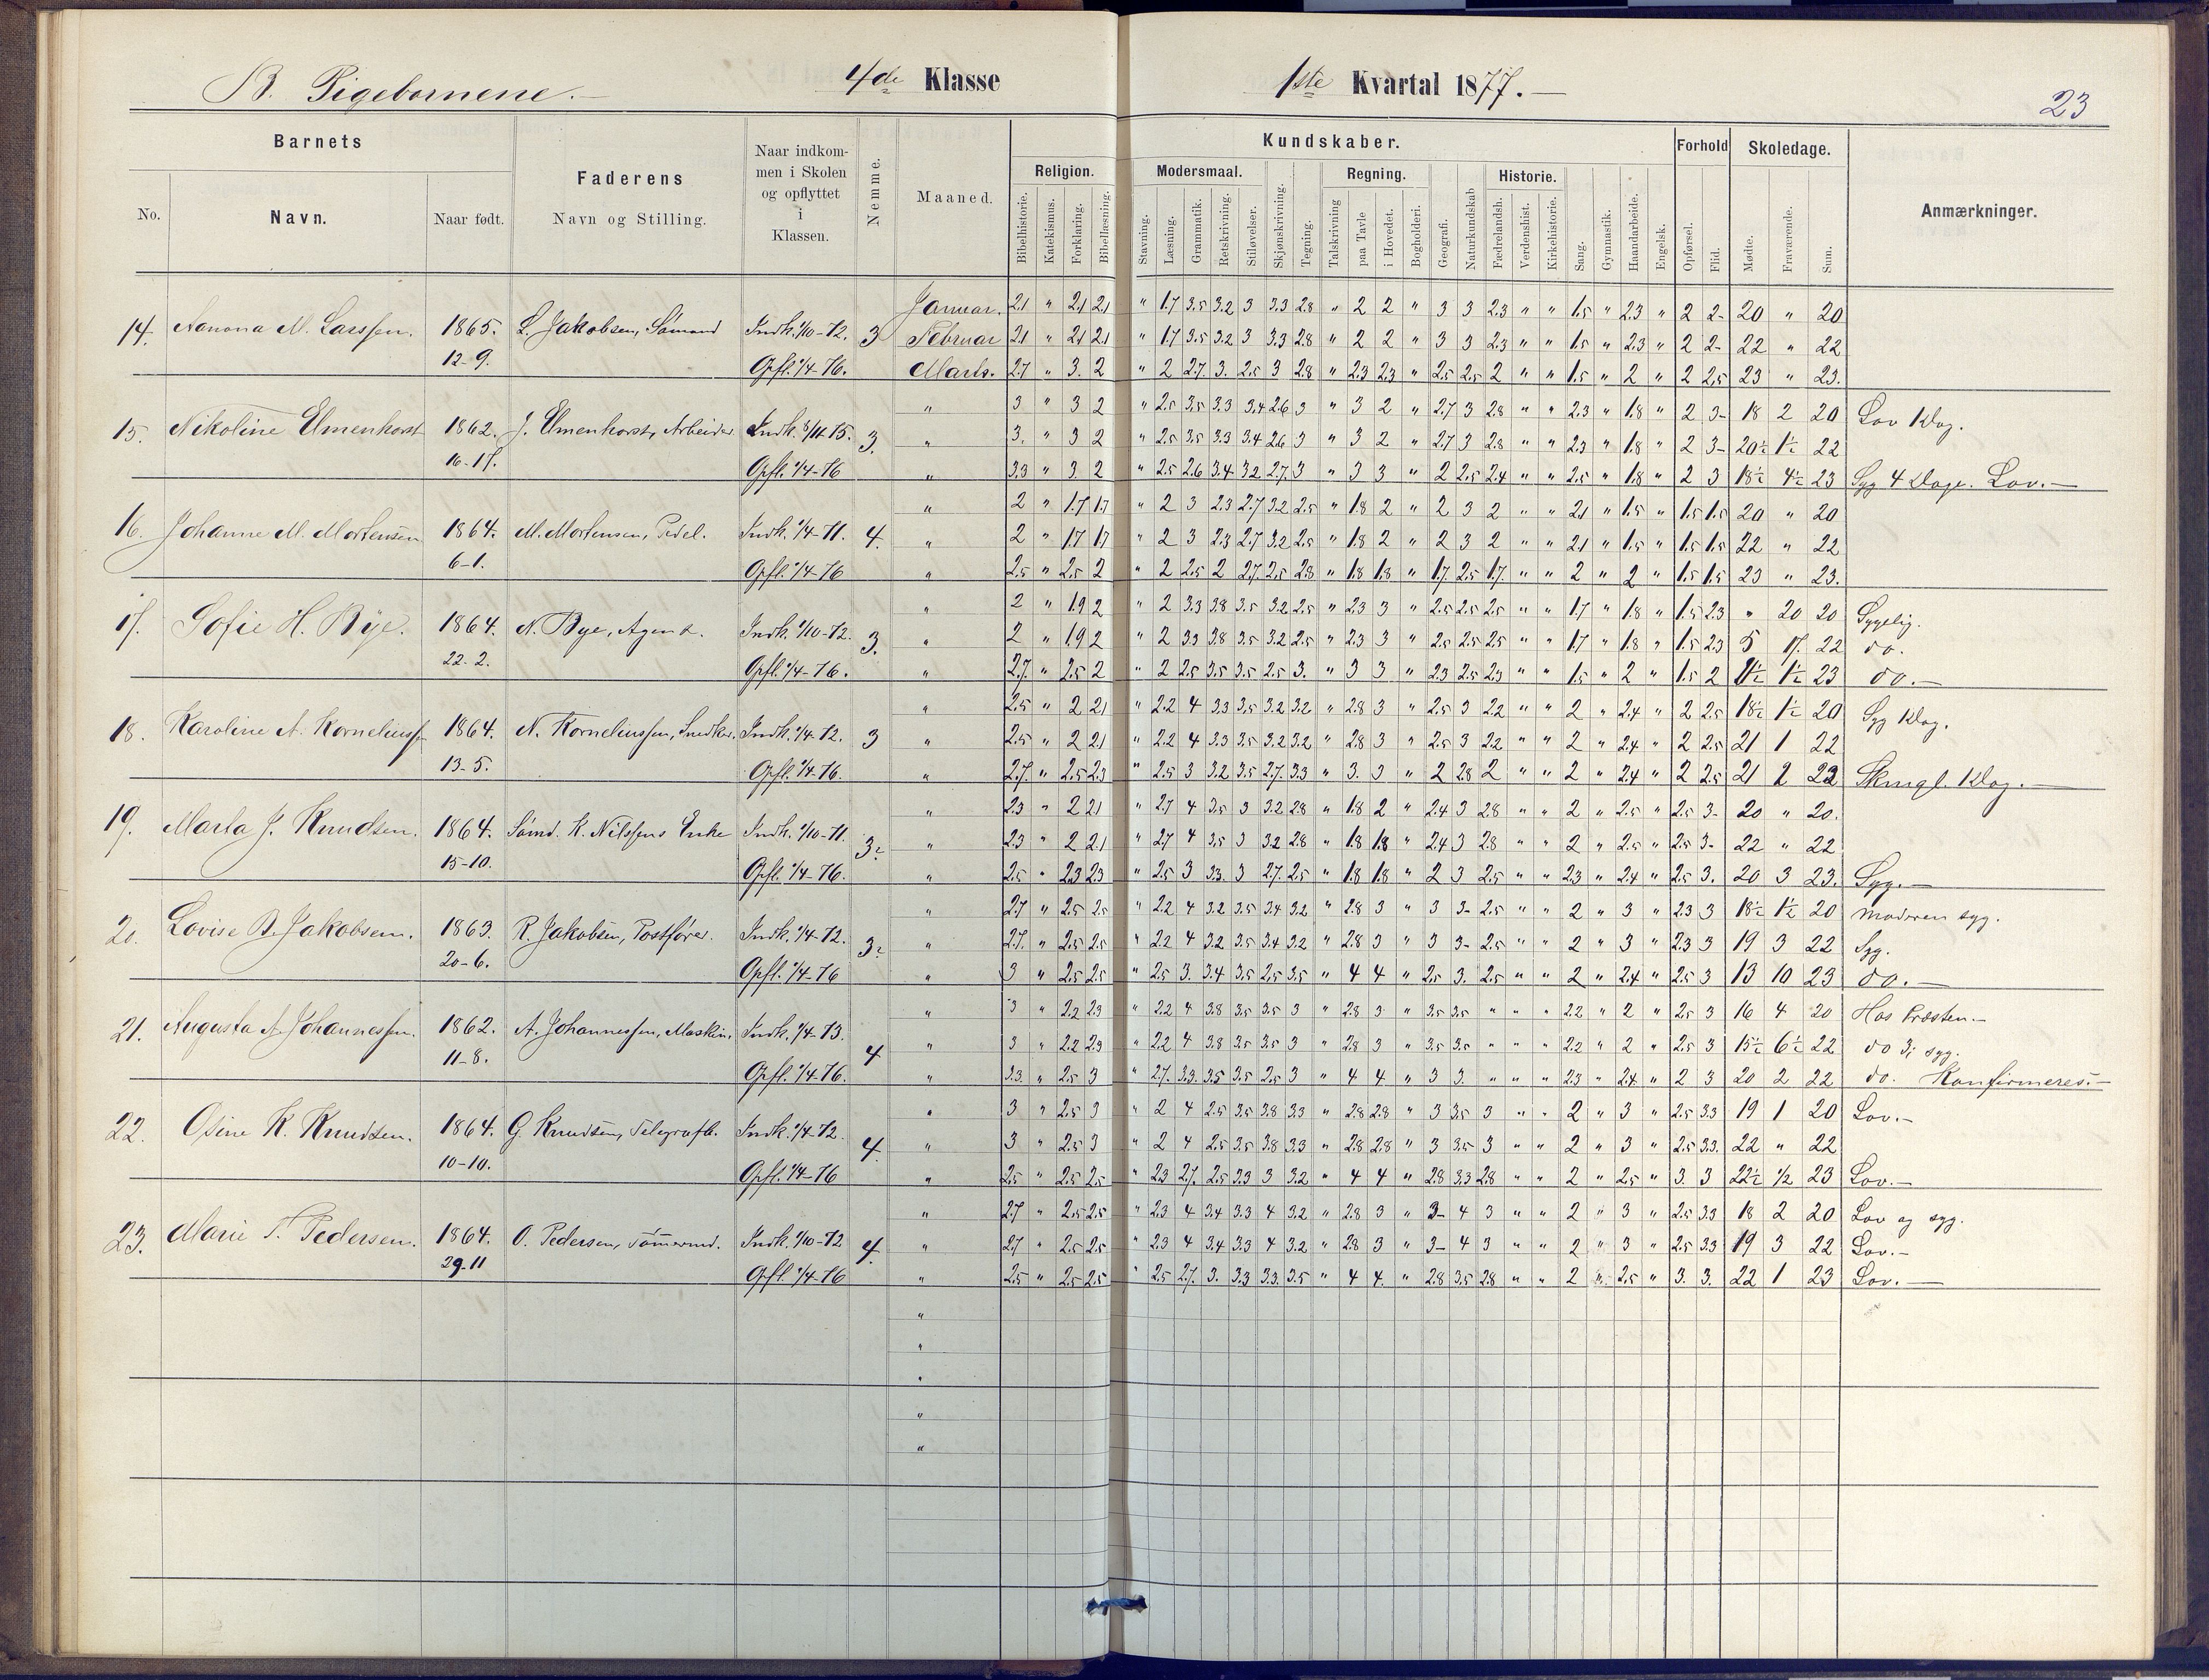 B. Pigebørnene.—
4de Klasse
1ste Kvartal 1877.—
23
Barnets
No.
Navn.
Naar født.
Faderens
Navn og Stilling.
Naar indkom-
men i Skolen
og opflyttet
i
Klassen.
Nemme.
Maaned.
Kundskaber.
Religion.
Bibelhistorie.
Katekismus.
Forklaring.
Bibellæsning.
Modersmaal.
Stavning.
Læsning.
Grammatik.
Retskrivning.
Stiløvelser.
Skjønskrivning.
Tegning.
Regning.
Talskrivning
paa Tavle
i Hovedet.
Bogholderi.
Geografi.
Naturkundskab
Historie.
Fædrelandsh.
Verdenshist.
Kirkehistorie.
Sang.
Gymnastik.
Haandarbeide.
Engelsk.
Forhold
Opførsel.
Flid.
Skoledage.
Mødte.
Fraværende.
Sum.
Anmærkninger.
Januar. 2,1 " 2,1 2,1 " 1,7 3,5 3,2 3 3,3 2,8 " 2 2 " 3 3 2,3 " " 1,5 " 2,3 " 2 2- 20 " 20
14. Aanona M. Larssen. 1865. L. Jakobsen, Sømand Indk. 1/10-72. 3 Februar 2,1 " 2,1 2,1 " 1,7 3,5 3,2 3 3,3 2,8 " 2 2 " 3 3 2,3 " " 1,5 " 2,3 " 2 2- 22 " 22
12-9. Opfl. 1/4-76. Marts. 2,7 " 3. 2 " 2 2,7. 3. 2,5 3 2,8 " 2,3 2,3 " 2,5 2,5 2 " " 1,5 " 2 " 2 2,5 23 " 23.
" 3 " 3 2 " 2,5 3,5 3,3 3,4 2,6 3 " 3 2 " 2,7 3 2,8 " " 2,3 " 1,8 " 2 3- 18 2 20 Lov 1 Dag.
15. Nikoline Elmenhorst 1862. J. Elmenhorst, Arbeider. Indk. 8/11-75. 3. " 3. " 3 2 " 2,5 3,5 3,3 3,4 2,6 3 " 3 2 " 2,7 3 2,8 " " 2,3 " 1,8 " 2 3- 20½ 1½ 22
16-17. Opfl. 1/4-76 " 3,3 " 3. 2 " 2,5 2,6 3,4 3,2 2,7. 3 " 3 3 " 2 2,5 2,4 " " 2,5 " 1,8 " 2 3 18½ 4½ 23 Syg 4 Dage. Lov.—
" 2 " 1,7 1,7 " 2 3 2,3 2,7 3,2 2,5 " 1,8 2 " 2 3 2 " " 2,1 " 1,5 " 1,5 1,5 20 " 20
16. Johanne M. Mortensen 1864. M. Mortensen, Pedel. Indk. 1/4-71. 4. " 2 " 1,7 1,7 " 2 3 2,3 2,7 3,2 2,5 " 1,8 2 " 2 3 2 " " 2,1 " 1,5 " 1,5 1,5 22 " 22
6-1. Opfl. 1/4-76 " 2,5 " 2,5 2 " 2 2,5 2 2,7. 2,5 2,8 " 1,8 1,8 " 1,7. 2,5 1,7. " " 2 " 2 " 1,5 1,5 23 " 23.
" 2 " 1,9 2 " 2 3,3 3,8 3,5 3,2 2,5 " 2,3 3 " 2,5 2,5 2,5 " " 1,7 " 1,8 " 1,5 2,3 " 20 20 Sygelig.
17. Sofie H. Bye. 1864. N. Bye, Agent. Indk. 1/10-72. 3. " 2 " 1,9 2 " 2 3,3 3,8 3,5 3,2 2,5 " 2,3 3 " 2,5 2,5 2,5 " " 1,7 " 1,8 " 1,5 2,3 5 17. 22 do.
22-2. Opfl. 1/4-76. " 2,7. " 2,5 2 " 2 2,5 3,5 3,5 2,5 3. " 3 3 " 2,3 2,5 2,3 " " 1,5 " 2 " 1,5 2 1½ 23 do.—
" 2,5 " 2 2,1 " 2,2 4 3,3 3,5 3,2 3,2 " 2,8 3 " 2,5 3 2,2 " " 2 " 2,4 " 2 2,5 18½ 1½ 20 Syg 1 Dag.
18. Karoline A. Korneliussen 1864. N. Korneliussen, Snedker. Indk. 1/4-72. 3 " 2,5 " 2 2,1 " 2,2 4 3,3 3,5 3,2 3,2 " 2,8 3 " 2,5 3 2,2 " " 2 " 2,4 " 2 2,5 21 1 22
13-5. Opfl. 1/4-76. " 2,7. " 2,5 2,3 " 2,5 3 3,2 3,5 2,7. 3,3 " 3. 3 " 2 2,8 2 " " 2 " 2,4 " 2 2,5 21 2 23 Skingl. 1 Dag.—
" 2,3 " 2 2,1 " 2,7 4 3,5 3 3,2 2,8 " 1,8 2 " 2,4 3 2,8 " " 2 " 2,5 " 2,5 3- 20 " 20.
19. Marta J. Knudsen. 1864. Sømd. K. Nilssens Enke Indk. 1/10-71. 3. " 2,3 " 2 2,1 " 2,7 4 3,5 3 3,2 2,8 " 1,8 1,8 " 2,4 3 2,8 " " 2 " 2,5 " 2,5 3- 22 " 22
15-10. Opfl. 1/4-76. " 2,5 " 2,3 2,3 " 2,5 3 3,3. 3 2,7. 2,5 " 1,8 1,8 " 2 3 2,5 " " 2,3 " 2,4 " 2,5 3. 20 3 23. Syg.—
" 2,7 " 2,5 2,5 " 2,2 4 3,2 3,5 3,4 3,2 " 2,8 3 " 3 3- 2,5 " " 2 " 3 " 2,3 3 18½ 1½ 20 Moderen syg.
20. Lovise B. Jakobsen. 1863. R. Jakobsen, Postfører. Indk. 1/4-72. 3. " 2,7. " 2,5 2,5 " 2,2 4 3,2 3,5 3,4 3,2 " 2,8 3 " 3 3- 2,5 " " 2 " 3 " 2,3 3 19 3 22 Syg.
20-6. Opfl. 1/4-76 " 3 " 2,5 2,5 " 2,5 3. 3,4 3,5 2,5 3,5 " 4 4 " 2,5 3. 2,5 " " 2 " 2,4 " 2,5 3 13 10 23 do.—
" 3 " 2,2 2,3 " 2,2 4 3,8 3,5 3,5 3 " 2,8 3 " 3,5 3,5 " " " 2,2 " 2 " 2,5 3 16 4 20 Hos Præsten.—
21. Augusta A. Johannessen. 1862. A. Johannessen, Maskin. Indk. 1/4-73. 4 " 3 " 2,2 2,3 " 2,2 4 3,8 3,5 3,5 3 " 2,8 3 " 3,5 3,5 " " " 2,2 " 2 " 2,5 3 15½ 6½ 22 do 3; syg.
11-8. Opfl. 1/4-76. " 3,3. " 2,5 3 " 2,7. 3,3. 3,5 3,5 2,5 3 " 4 4 " 3 3. " " " 2,3 " 2,4 " 2 3 20 2 22 do. Konfirmeres.—
" 3 " 2,5 3 " 2 4 2,5 3,5 3,8 3,3 " 2,8 2,8 " 3 3,5 3 " " 2 " 3 " 2,5 3,3 19 1 20 Lov.—
22. Osine K. Knudsen. 1864. G. Knudsen, Telegrafb. Indk. 1/4-72. 4. " 3 " 2,5 3 " 2 4 2,5 3,5 3,8 3,3 " 2,8 2,8 " 3 3,5 3 " " 2 " 3 " 2,5 3,3. 22 " 22
10-10. Opfl. 1/4-76 " 2,5 " 2,5 2,5 " 2,3 2,7. 2,5 3,3 3 3,2 " 4 4 " 2,8 3,3 2,8 " " 2 " 2,5 " 3. 3 22½ ½ 23 Lov.—
" 2,7 " 2,5 2,5 " 2,3 4 3,4 3,3 4 3,2 " 2,8 3 " 3- 4 3 " " 2 " 3 " 2,5 3,3 18 2 20 Lov og syg.
23. Marie T. Pedersen. 1864. O. Pedersen, Tømmermd. Indk. 1/10-72 4. " 2,7 " 2,5 2,5 " 2,3 4 3,4 3,3 4 3,2 " 2,8 3 " 3- 4 3 " " 2 " 3 " 2,5 3,3 19 3 22 Lov.—
29-11 Opfl. 1/4-76 " 2,5 " 2,5 2,5 " 2,5 2,7. 3. 3,3 3,3. 3,5 " 4 4. " 2,8 3,5 2,8 " " 2 " 2,5 " 3. 3. 22 1 23 Lov.—
"
"
"
"
"